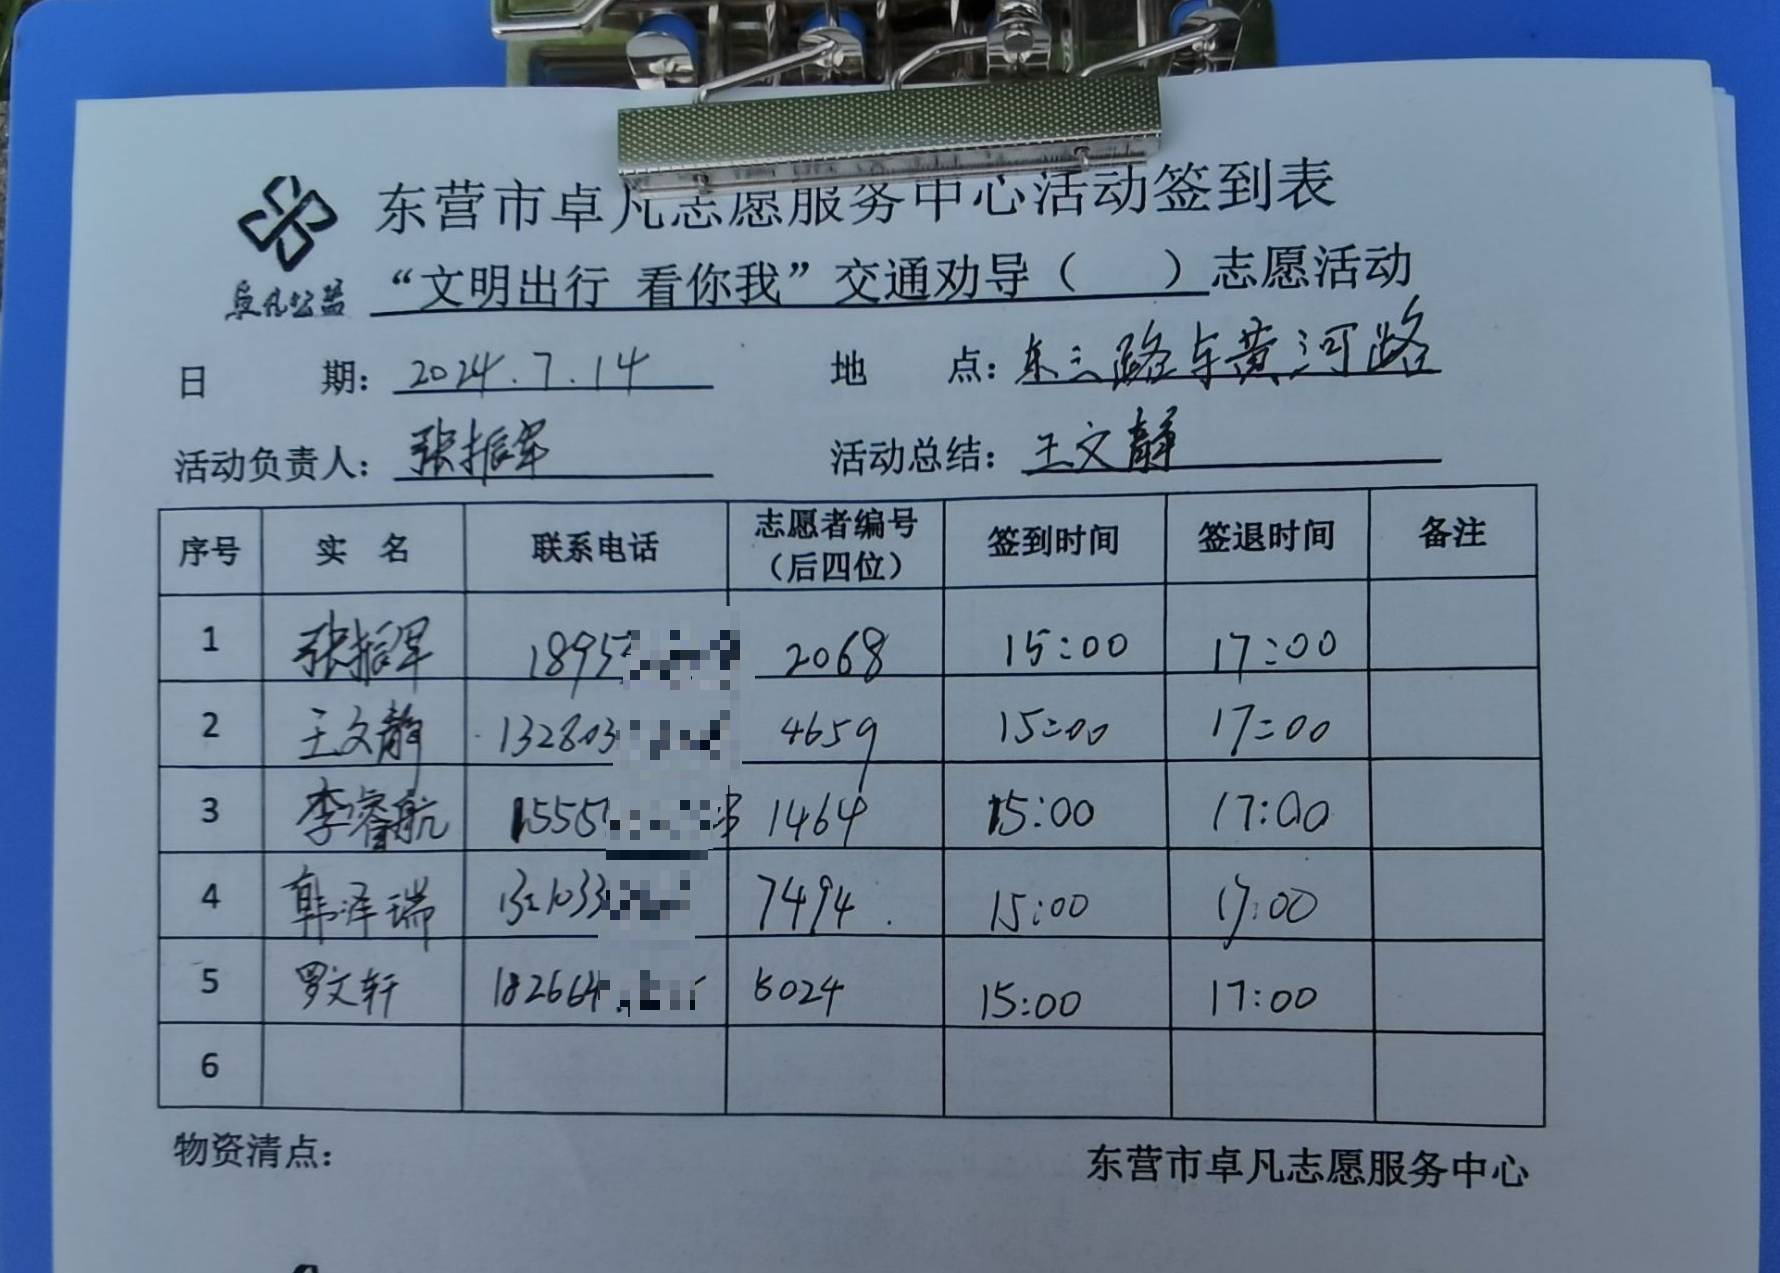 东营市卓凡志愿服务中心活动签到表
卓凡公益
“文明出行 看你我”交通劝导（ ）志愿活动
日 期： 2024.7.14 地 点： 东三路与黄河路
活动负责人： 张振军 活动总结： 王文静
序号 实 名 联系电话 志愿者编号（后四位） 签到时间 签退时间 备注
1 张振军 1895 2068 15:00 17:00
2 王文静 132803 4659 15:00 17:00
3 李睿航 1555 1464 15:00 17:00
4 韩泽瑞 1321033 7494 15:00 17:00
5 罗文轩 182664 6024 15:00 17:00
6
物资清点：
东营市卓凡志愿服务中心